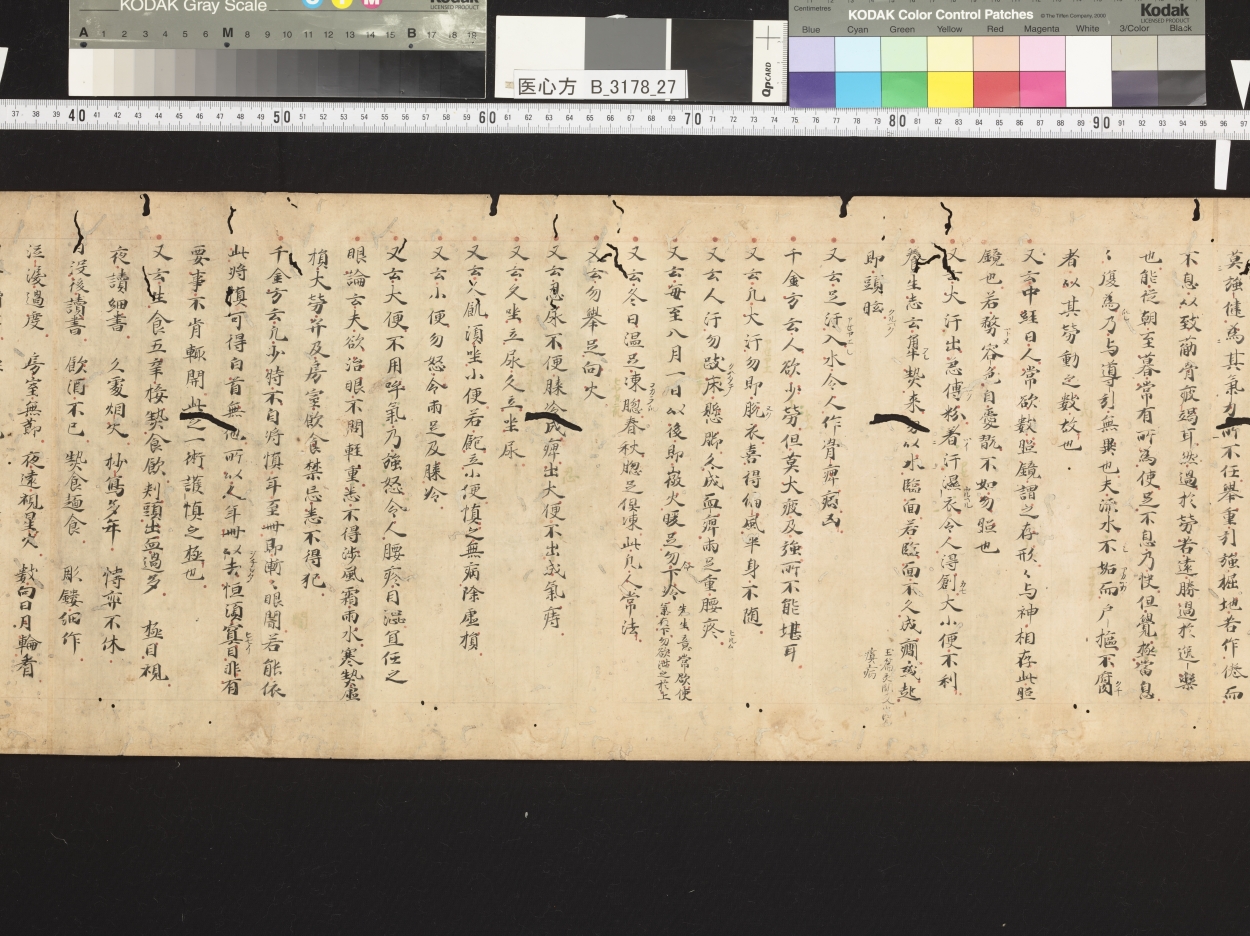 KODAK Gray Scale
Kodak
LICENSED PRODUCT
A 1 2 3 4 5 6 M 8 9 10 11 12 13 14 15 B 17 18 19
医心方 B_3178_27
QPCARD
Centimetres
KODAK Color Control Patches
© The Tiffen Company, 2000
Kodak
LICENSED PRODUCT
Blue Cyan Green Yellow Red Magenta White 3/Color Black
37 38 39 40 41 42 43 44 45 46 47 48 49 50 51 52 53 54 55 56 57 58 59 60 61 62 63 64 65 66 67 68 69 70 71 72 73 74 75 76 77 78 79 80 81 82 83 84 85 86 87 88 89 90 91 92 93 94 95 96 97
莫強健為其氣力所不任舉重引強掘地若作倦而
不息以致筋骨疲竭耳然過於勞者遠勝過於逸樂
也能従朝至暮常有所為使足不息乃快但覺極當息
〻復為乃与導引無異也夫流水不垢而戸樞不腐
者以其勞動之数故也
又云中経曰人常欲数照鏡謂之存形〻与神相存此照
鏡也若務容色自愛翫不如勿照也
又云大汗出急傅粉着汗濕衣令人得創大小便不利
養生志云奉熱来勿以水臨面若臨面不久成癇或起
即頭眩
又云足汗入水令人作骨痺
千金方云人欲少勞但莫大疲及強所不能堪耳
又云凡大汗勿即脱衣喜得細風半身不随
又云人汗勿跂床懸脚久成血痺両足重腰疼
又云毎至八月一日以後即微火暖足勿下冷
又云冬日温足凍腦春秋腦足俱凍此凡人常法
又云勿舉足向火
又云忍尿不便膝冷成痺忍大便不出成氣痔
又云久坐立尿久立坐尿
又云人飢須坐小便若飽立小便慎之無病除虚損
又云小便勿怒令両足及膝冷
又云大便不用呼氣乃強怒令人腰疼目澁宜任之
眼論云夫欲治眼不問軽重悉不得渉風霜雨水寒熱虚
損大勞并及房室飲食禁忌悉不得犯
千金方云凡少時不自将慎年至卌即漸〻眼闇若能依
此将慎可得白首無他所以人年卌以去恒須瞑目非有
要事不肯輙開此之一術護慎之極也
又云生食五辛接熱食飲刺頭出血過多 極目視
夜讀細書 久處烟火 抄寫多年 博奕不休
日没後讀書 飲酒不已 熱食麺食 彫鏤細作
泣涙過度 房室無節 夜遠視星火 数向日月輪看